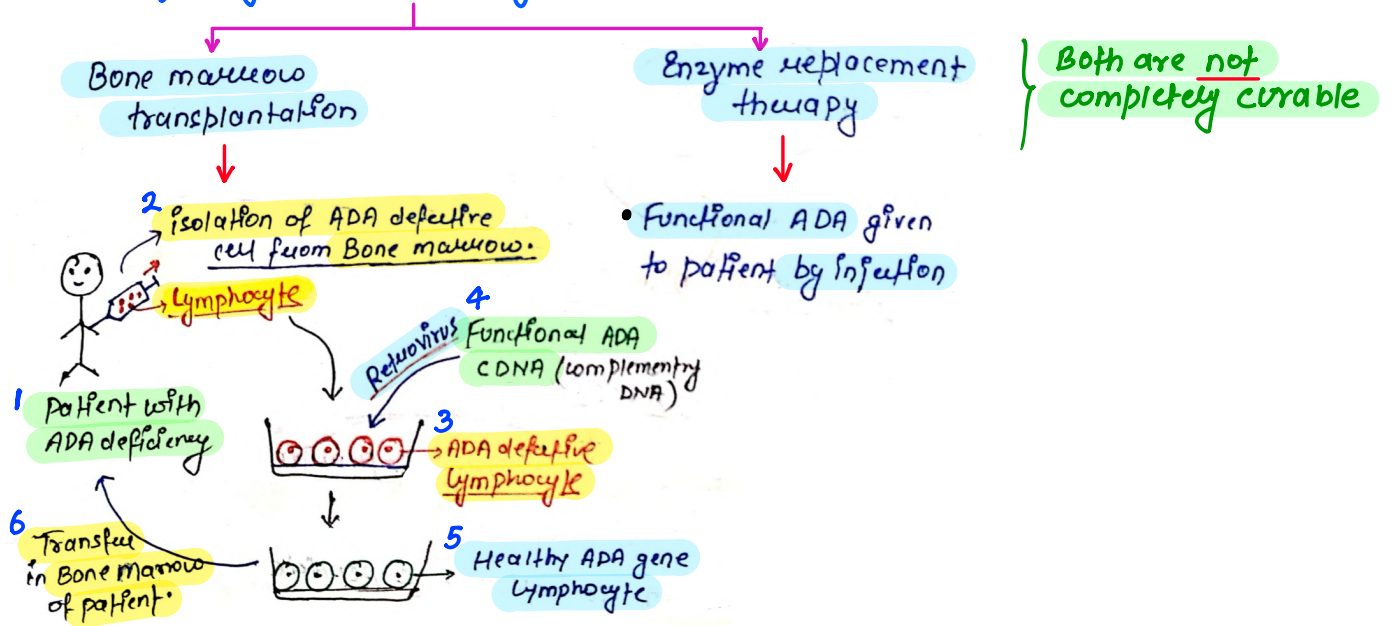 Bone marrow
transplantation
Enzyme replacement
therapy
Both are not
completely curable
2 isolation of ADA defective
cell from Bone marrow.
Lymphocyte
• Functional ADA given
to patient by injection
Retrovirus
4 Functional ADA
CDNA (complementry
DNA)
1 Patient with
ADA deficiency
3 ADA defective
Lymphocyte
5 Healthy ADA gene
Lymphocyte
6 Transfer
in Bone marrow
of patient.